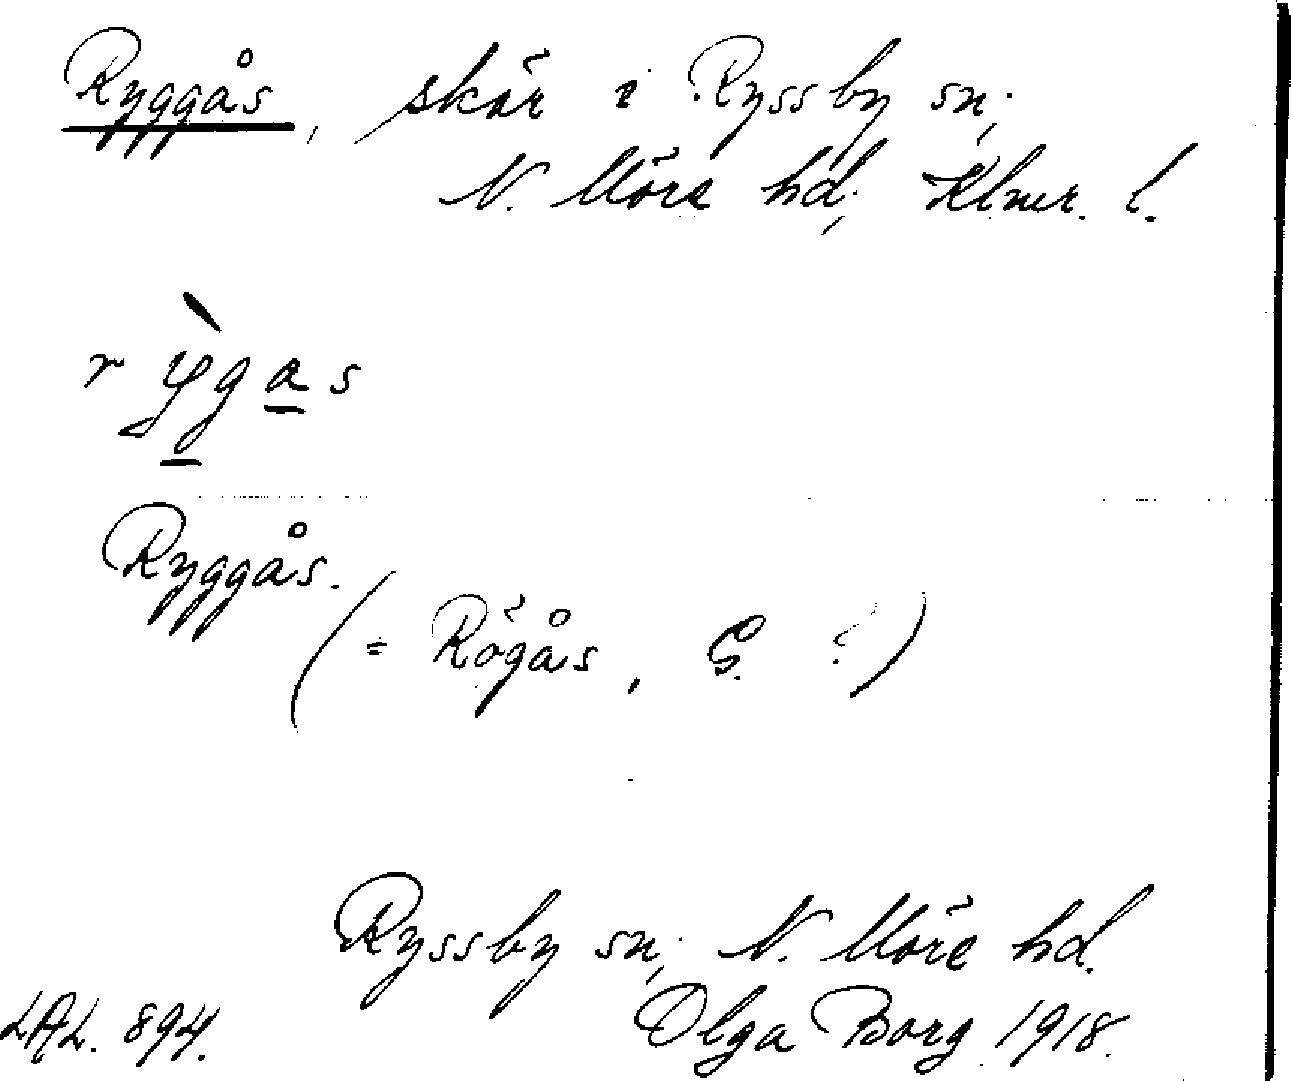 Ryggås, skär i Ryssby sn;
N. Möre hd; Klmr. l.
rỳgas
Ryggås.
(= Rögås, G. ?)
Ryssby sn; N. Möre hd.
LAL. 894. Olga Borg 1918.